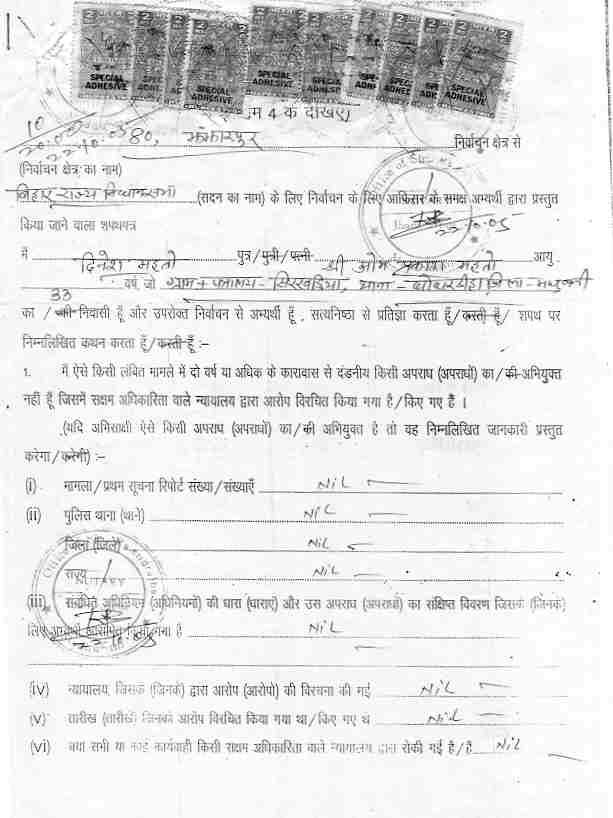 SPECIAL ADHESIVE SPECIAL ADHESIVE SPECIAL ADHESIVE SPECIAL ADHESIVE SPECIAL ADHESIVE
म 4 क देखिए)
80, झंझारपुर निर्वाचन क्षेत्र से
(निर्वाचन क्षेत्र का नाम)
बिहार राज्य विधानसभा (सदन का नाम) के लिए निर्वाचन के लिए आफिसर के समक्ष अभ्यर्थी द्वारा प्रस्तुत
22.10.05
किया जाने वाला शपथपत्र
में दिनेश महतो पुत्र/पुत्री/पत्नी श्री ओम प्रकाश महतो आयु
33 वर्ष, जो ग्राम+पंचायत- थाना- जिला-मधुबनी
का/की निवासी हूँ और उपरोक्त निर्वाचन से अभ्यर्थी हूँ, सत्यनिष्ठा से प्रतिज्ञा करता हूँ/करती हूँ/ शपथ पर
निम्नलिखित कथन करता हूँ/करती हूँ :-
1. मैं ऐसे किसी लंबित मामले में दो वर्ष या अधिक के कारावास से दंडनीय किसी अपराध (अपराधों) का/की अभियुक्त
नहीं हूँ जिसमें सक्षम अधिकारिता वाले न्यायालय द्वारा आरोप विरचित किया गया है/किए गए हैं ।
(यदि अभिसाक्षी ऐसे किसी अपराध (अपराधों) का/की अभियुक्त है तो वह निम्नलिखित जानकारी प्रस्तुत
करेगा/करेगी) :-
(i) मामला/प्रथम सूचना रिपोर्ट संख्या/संख्याएँ NiL
(ii) पुलिस थाना (थाने) NiL
जिला (जिले) NiL
राज्य NiL
NOTARY
(iii) संबंधित अधिनियम (अधिनियनों) की धारा (धाराए) और उस अपराध (अपराधों) का संक्षिप्त विवरण जिसके (जिनके)
लिए अभ्यर्थी आरोपित किया गया है NiL
(iv) न्यायालय, जिसके (जिनके) द्वारा आरोप (आरोपो) की विरचना की गई NiL
(v) तारीख (तारीखें) जिनको आरोप विरचित किया गया था/किए गए थ NiL
(vi) क्या सभी या कोई कार्यवाही किसी सक्षम अधिकारिता वाले न्यायालय द्वारा रोकी गई है/है NiL